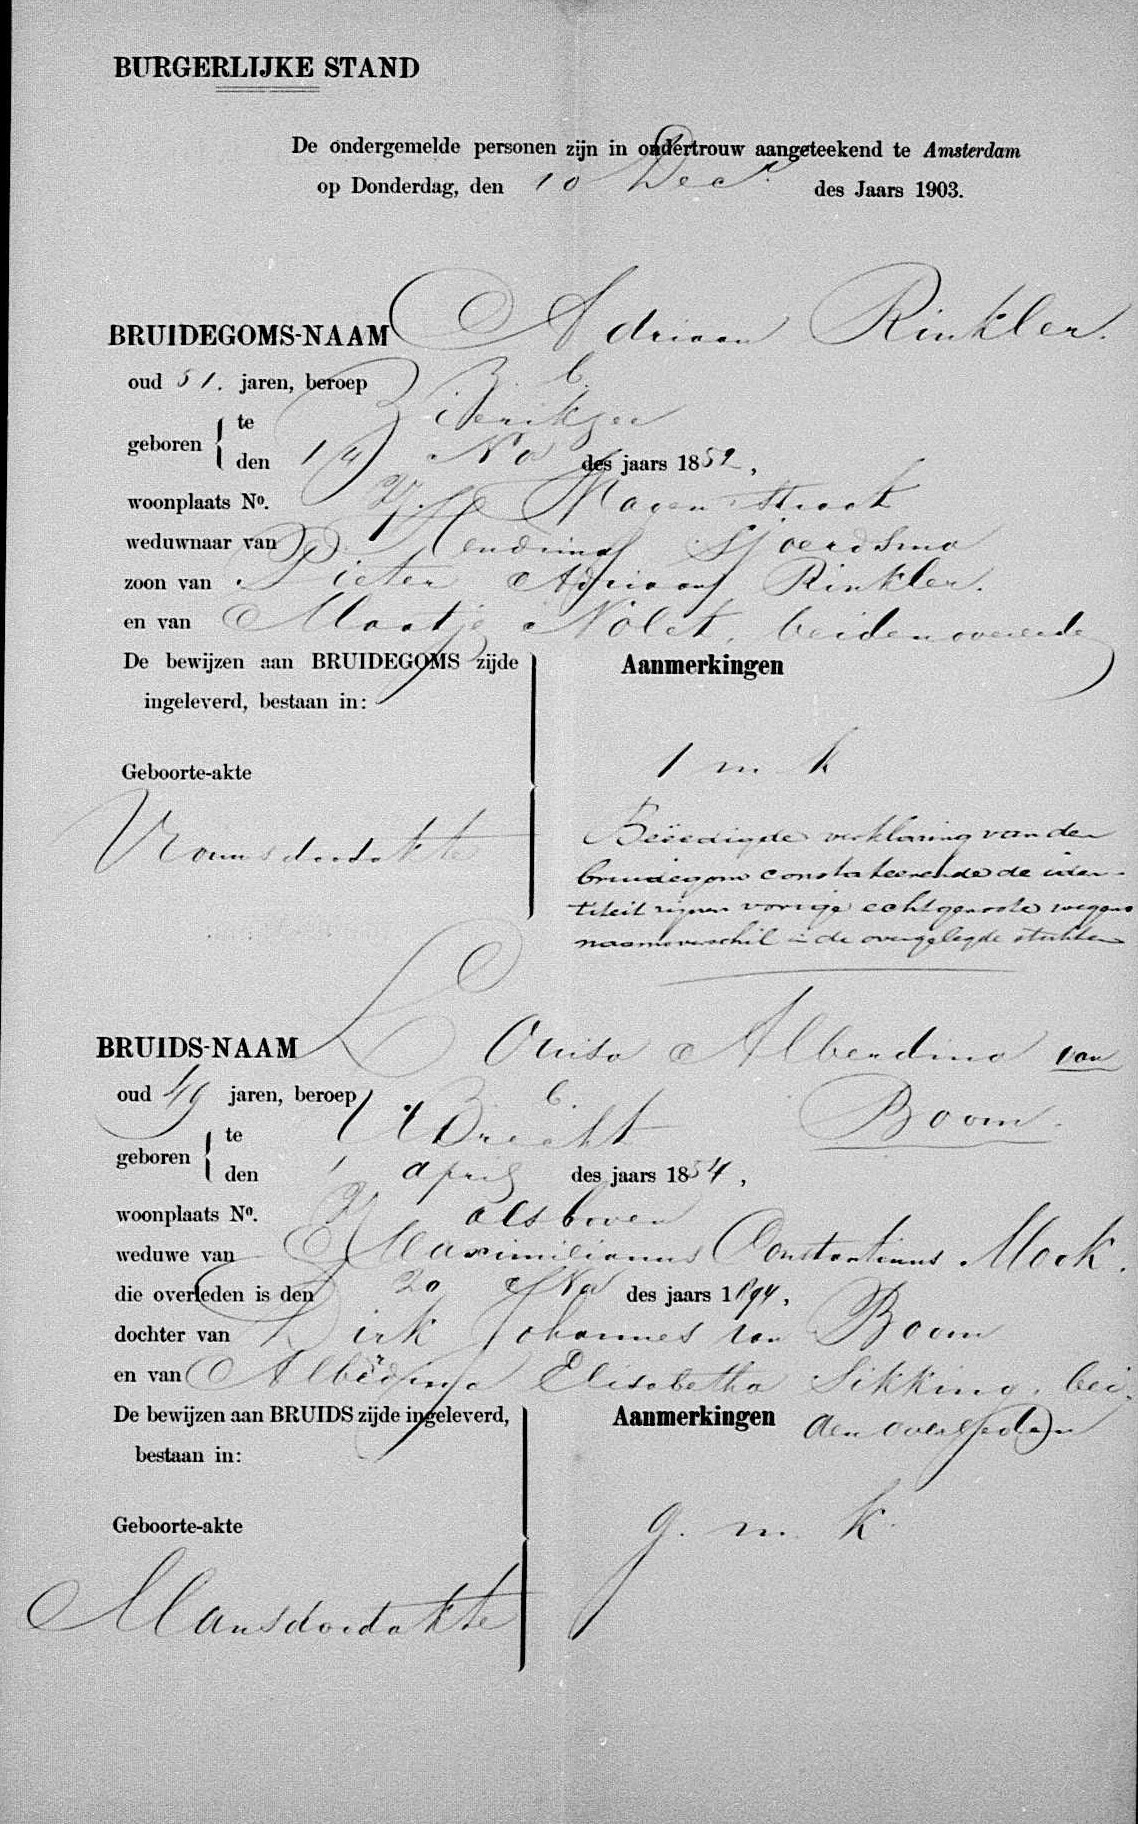 BURGERLIJKE STAND
De ondergemelde personen zijn in ondertrouw aangeteekend te Amsterdam
op Donderdag, den 10 Decr. des Jaars 1903.
BRUIDEGOMS-NAAM Adriaan Rinkler.
oud 51. jaren, beroep
geboren te Zierikzee
den 14 No des jaars 1852,
woonplaats No.
weduwnaar van Hendrina Sjoerdsma
zoon van Pieter Adriaan Rinkler.
en van Maatje Nolet, beiden overleden
De bewijzen aan BRUIDEGOMS zijde
ingeleverd, bestaan in:
Aanmerkingen
Geboorte-akte
1 m k
Vrouwsdoodakte
Beëedigde verklaring van den
bruidegom constateerende de iden-
titeit zijner vorige echtgenoote wegens
naamsverschil in de overgelegde stukken
BRUIDS-NAAM Louisa Alberdina van
Boom.
oud 49 jaren, beroep
geboren te Utrecht
den 1 april des jaars 1854,
woonplaats No. als boven
weduwe van Maximilianus Constantinus Mook.
die overleden is den 20 No des jaars 1894,
dochter van Dirk Johannes van Boom
en van Alberdina Elisabetha Sikking, bei-
den overleden
De bewijzen aan BRUIDS zijde ingeleverd,
bestaan in:
Aanmerkingen
Geboorte-akte
g. m. k.
Mansdoodakte